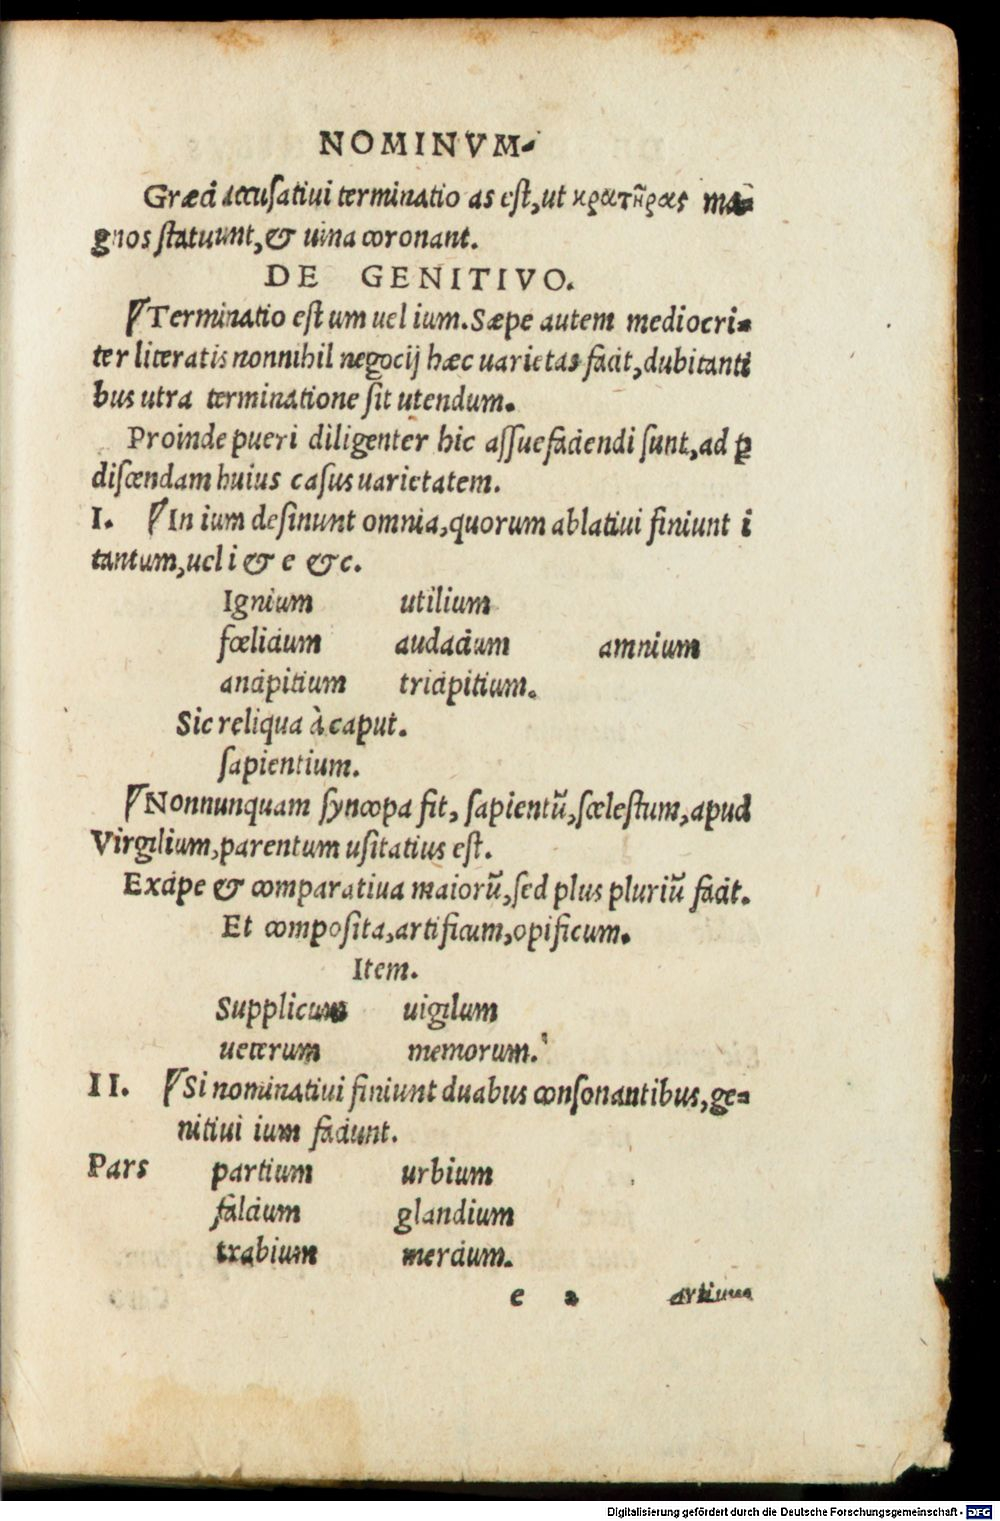 NOMINVM.
Græci accusatiui terminatio as est, ut κρατῆρας ma-
gnos statuunt, & uina coronant.
DE GENITIVO.
Terminatio est um uel ium. Sæpe autem mediocri-
ter literatis nonnihil negocij hæc uarietas facit, dubitanti
bus utra terminatione sit utendum.
Proinde pueri diligenter hic assuefaciendi sunt, ad ꝑ
discendam huius casus uarietatem.
I. In ium desinunt omnia, quorum ablatiui finiunt i
tantum, uel i & e &c.
Ignium utilium
fœlicium audacium amnium
ancipitium tricipitium.
Sic reliqua à caput.
sapientium.
Nonnunquam syncopa fit, sapientũ, scelestum, apud
Virgilium, parentum usitatius est.
Excipe & comparatiua maiorũ, sed plus pluriũ facit.
Et composita, artificum, opificum.
Item.
Supplicum uigilum
ueterum memorum.
II. Si nominatiui finiunt duabus consonantibus, ge-
nitiui ium faciunt.
Pars partium urbium
falcium glandium
trabium mercium.
e 2 artium
Digitalisierung gefördert durch die Deutsche Forschungsgemeinschaft - DFG